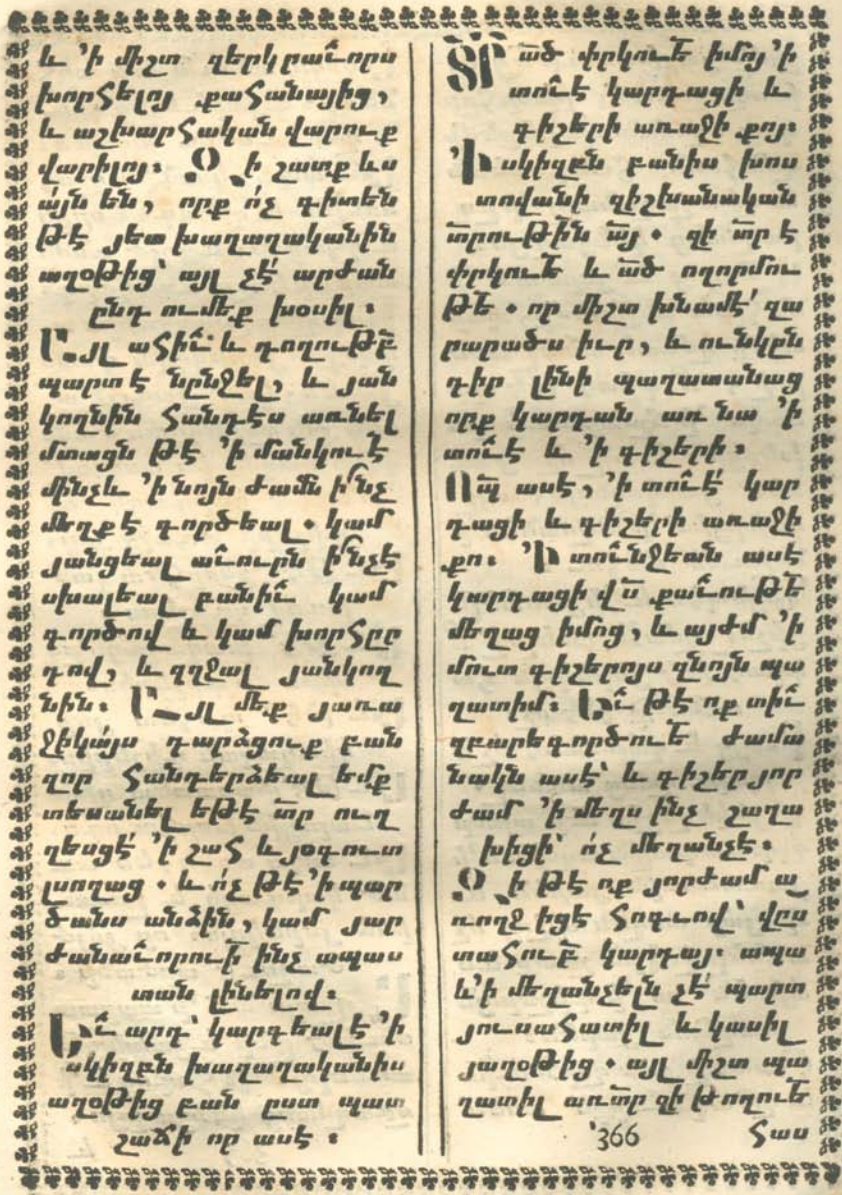 և ՚ի միշտ զերկրաւորս
խորհելոյ քահանայից,
և աշխարհական վարուք
վարիլոյ։ Զի շատք ևս
այն են, որք ոչ գիտեն
թէ յետ խաղաղականին
աղօթից՝ այլ չէ արժան
ընդ ումեք խօսիլ։
Այլ ահիւ և դողութբ
պարտ է նընջել, և յան
կողնին հանդէս առնել
մտացն թէ ՚ի մանկուէ
մինչև ՚ի նոյն ժամն ինչ
մեղք է գործեալ. կամ
յանցեալ աւուրն ինչէ
սխալեալ բանիւ կամ
գործով և կամ խորհըր
դով, և զղջալ յանկող
նին։ Այլ մեք յառա
ջիկայս դարձցուք բան
զոր հանդերձեալ եմք
տեսանել եթէ տր ուղ
ղեսցէ ՚ի շահ և յօգուտ
լսողաց. և ոչ թէ ՚ի պար
ծանս անձին, կամ յար
ժանաւորուի ինչ ապաս
տան լինելով։
Եւ արդ՝ կարգեալ է ՚ի
սկիզբն խաղաղականիս
աղօթից բան ըստ պատ
շաճի որ ասէ։
ՏՐ ած փրկուե իմոյ ՚ի
տուէ կարդացի և
գիշերի առաջի քոյ։
՚Ի սկիզբն բանիս խոս
տովանի զիշխանական
տրութին այ. զի տր է
փրկուե և ած ողորմու
թե. որ միշտ խնամէ՛ զա
րարածս իւր, և ունկըն
դիր լինի պաղատանաց
որք կարդան առ նա ՚ի
տուէ և ՚ի գիշերի։
Ոպ ասէ, ՚ի տուէ կար
դացի և գիշերի առաջի
քո։ ՚Ի տունջեան ասէ
կարդացի վս քաւութե
մեղաց իմոց, և այժմ ՚ի
մուտ գիշերոյս զնոյն պա
ղատիմ։ Եւ թէ ոք տիւ
զբարեգործուե ժամա
նակն ասէ՝ և գիշեր յոր
ժամ ՚ի մեղս ինչ շաղա
խիցի՝ ոչ մեղանչէ։
Զի թէ ոք յորժամ ա
ռողջ իցէ հոգւով՝ վըս
տահուբ կարդայ. ապա
և՚ի մեղանչելն չէ՛ պարտ
յուսահատիլ և կասիլ
յաղօթից. այլ միշտ պա
ղատիլ առ տր զի թողուե
՚366 հաս